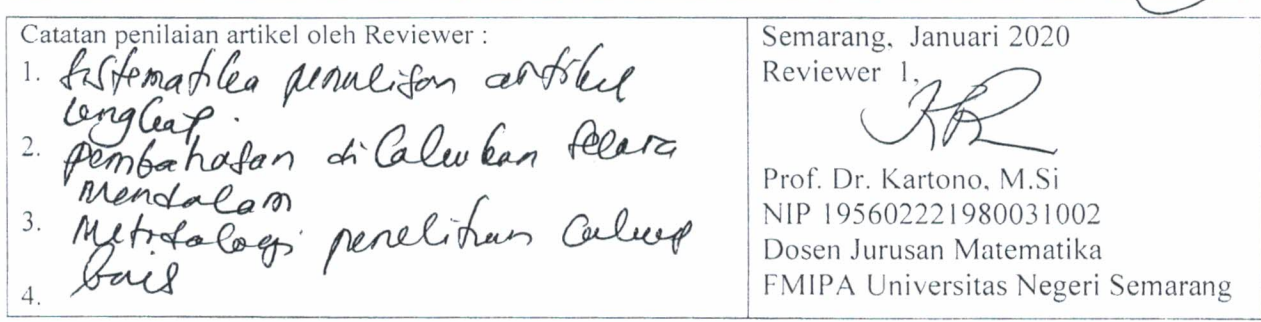 Catatan penilaian artikel oleh Reviewer :
1. Sistematika penulisan artikel
lengkap.
2. pembahasan dilakukan secara
mendalam
3. Metodologi penelitian cukup
baik
4.
Semarang, Januari 2020
Reviewer 1,
Prof. Dr. Kartono, M.Si
NIP 195602221980031002
Dosen Jurusan Matematika
FMIPA Universitas Negeri Semarang